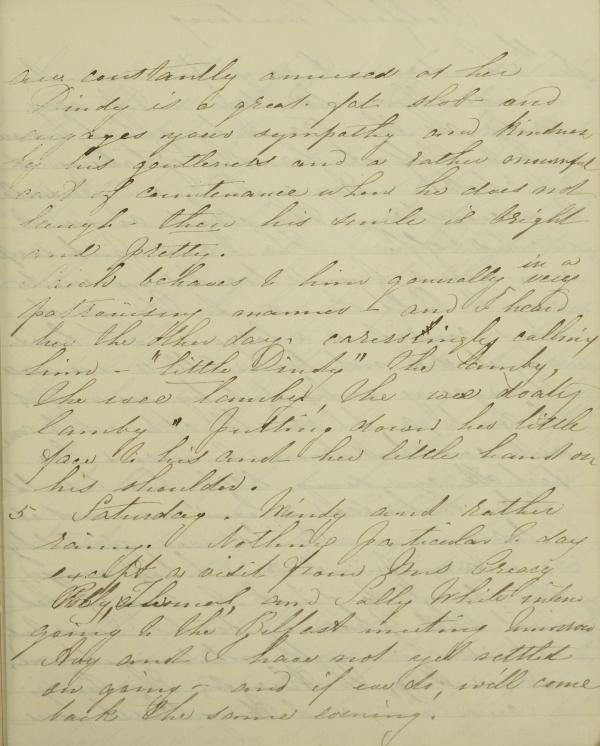 are constantly amused at her
Dindy is a great fat slob and
engages your sympathy and kindness
by his gentleness and a rather mournful
cast of countenance when he does not
laugh - then his smile is bright
and pretty.
behaves to him generally in a very
patronising manner - and I heard
her the other day caressingly calling
him - "little Dindy" The lamby,
the wee lamby, the wee doaty
lamby" putting down her little
face to his and her little hand on
his shoulder.
5 Saturday. Windy and rather
rainy. Nothing particular to day
except a visit from Mrs Creasy
Polly, Thomas, and Sally White
going to the Belfast meeting
and I have not yet settled
on going - and if we do, will come
back the same evening.